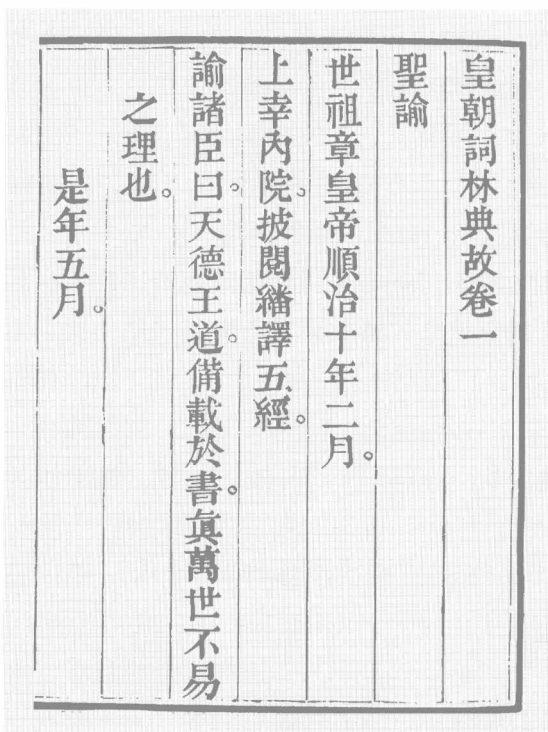 皇朝詞林典故卷一
聖諭
世祖章皇帝順治十年二月。
上幸內院。披閱繙譯五經。
諭諸臣曰。天德王道。備載於書。眞萬世不易
之理也。
是年五月。